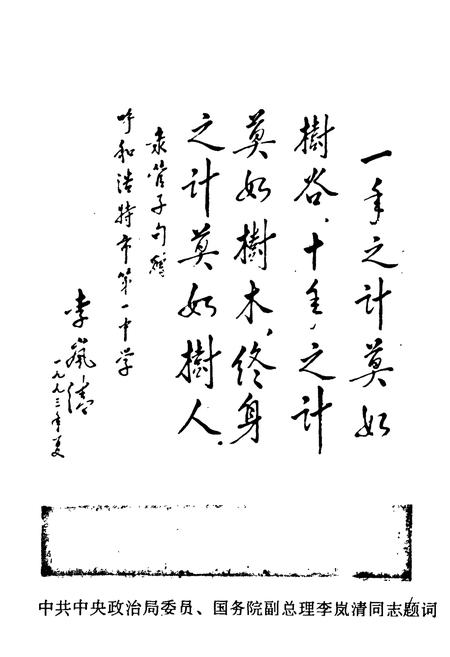 一年之计莫如
樹谷，十年之计
莫如樹木，终身
之计莫如樹人。
录管子句赠
呼和浩特市第一中学
李岚清
一九九三年夏
中共中央政治局委员、国务院副总理李岚清同志题词